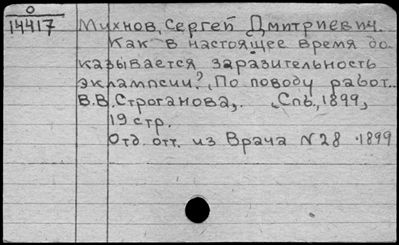 О
14417
Михнов, Сергей Дмитриевич.
Как в настоящее время до
казывается заразительность
эклампсии? По поводу работ..
В.В. Строганова,. Спб, 1899,
19 стр.
Отд. отт. из Врача N 28 · 1899